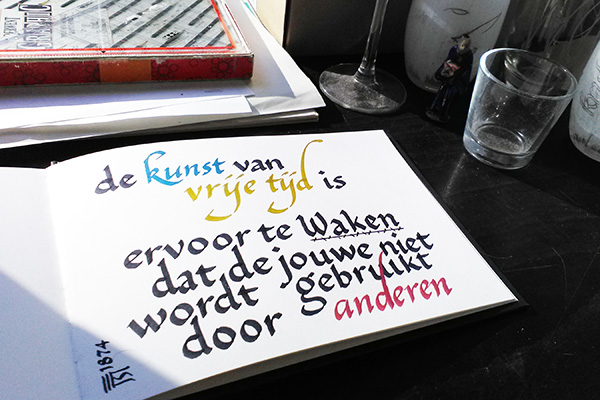 de kunst van
vrije tijd is
ervoor te Waken
dat de jouwe niet
wordt gebruikt
door anderen
1874